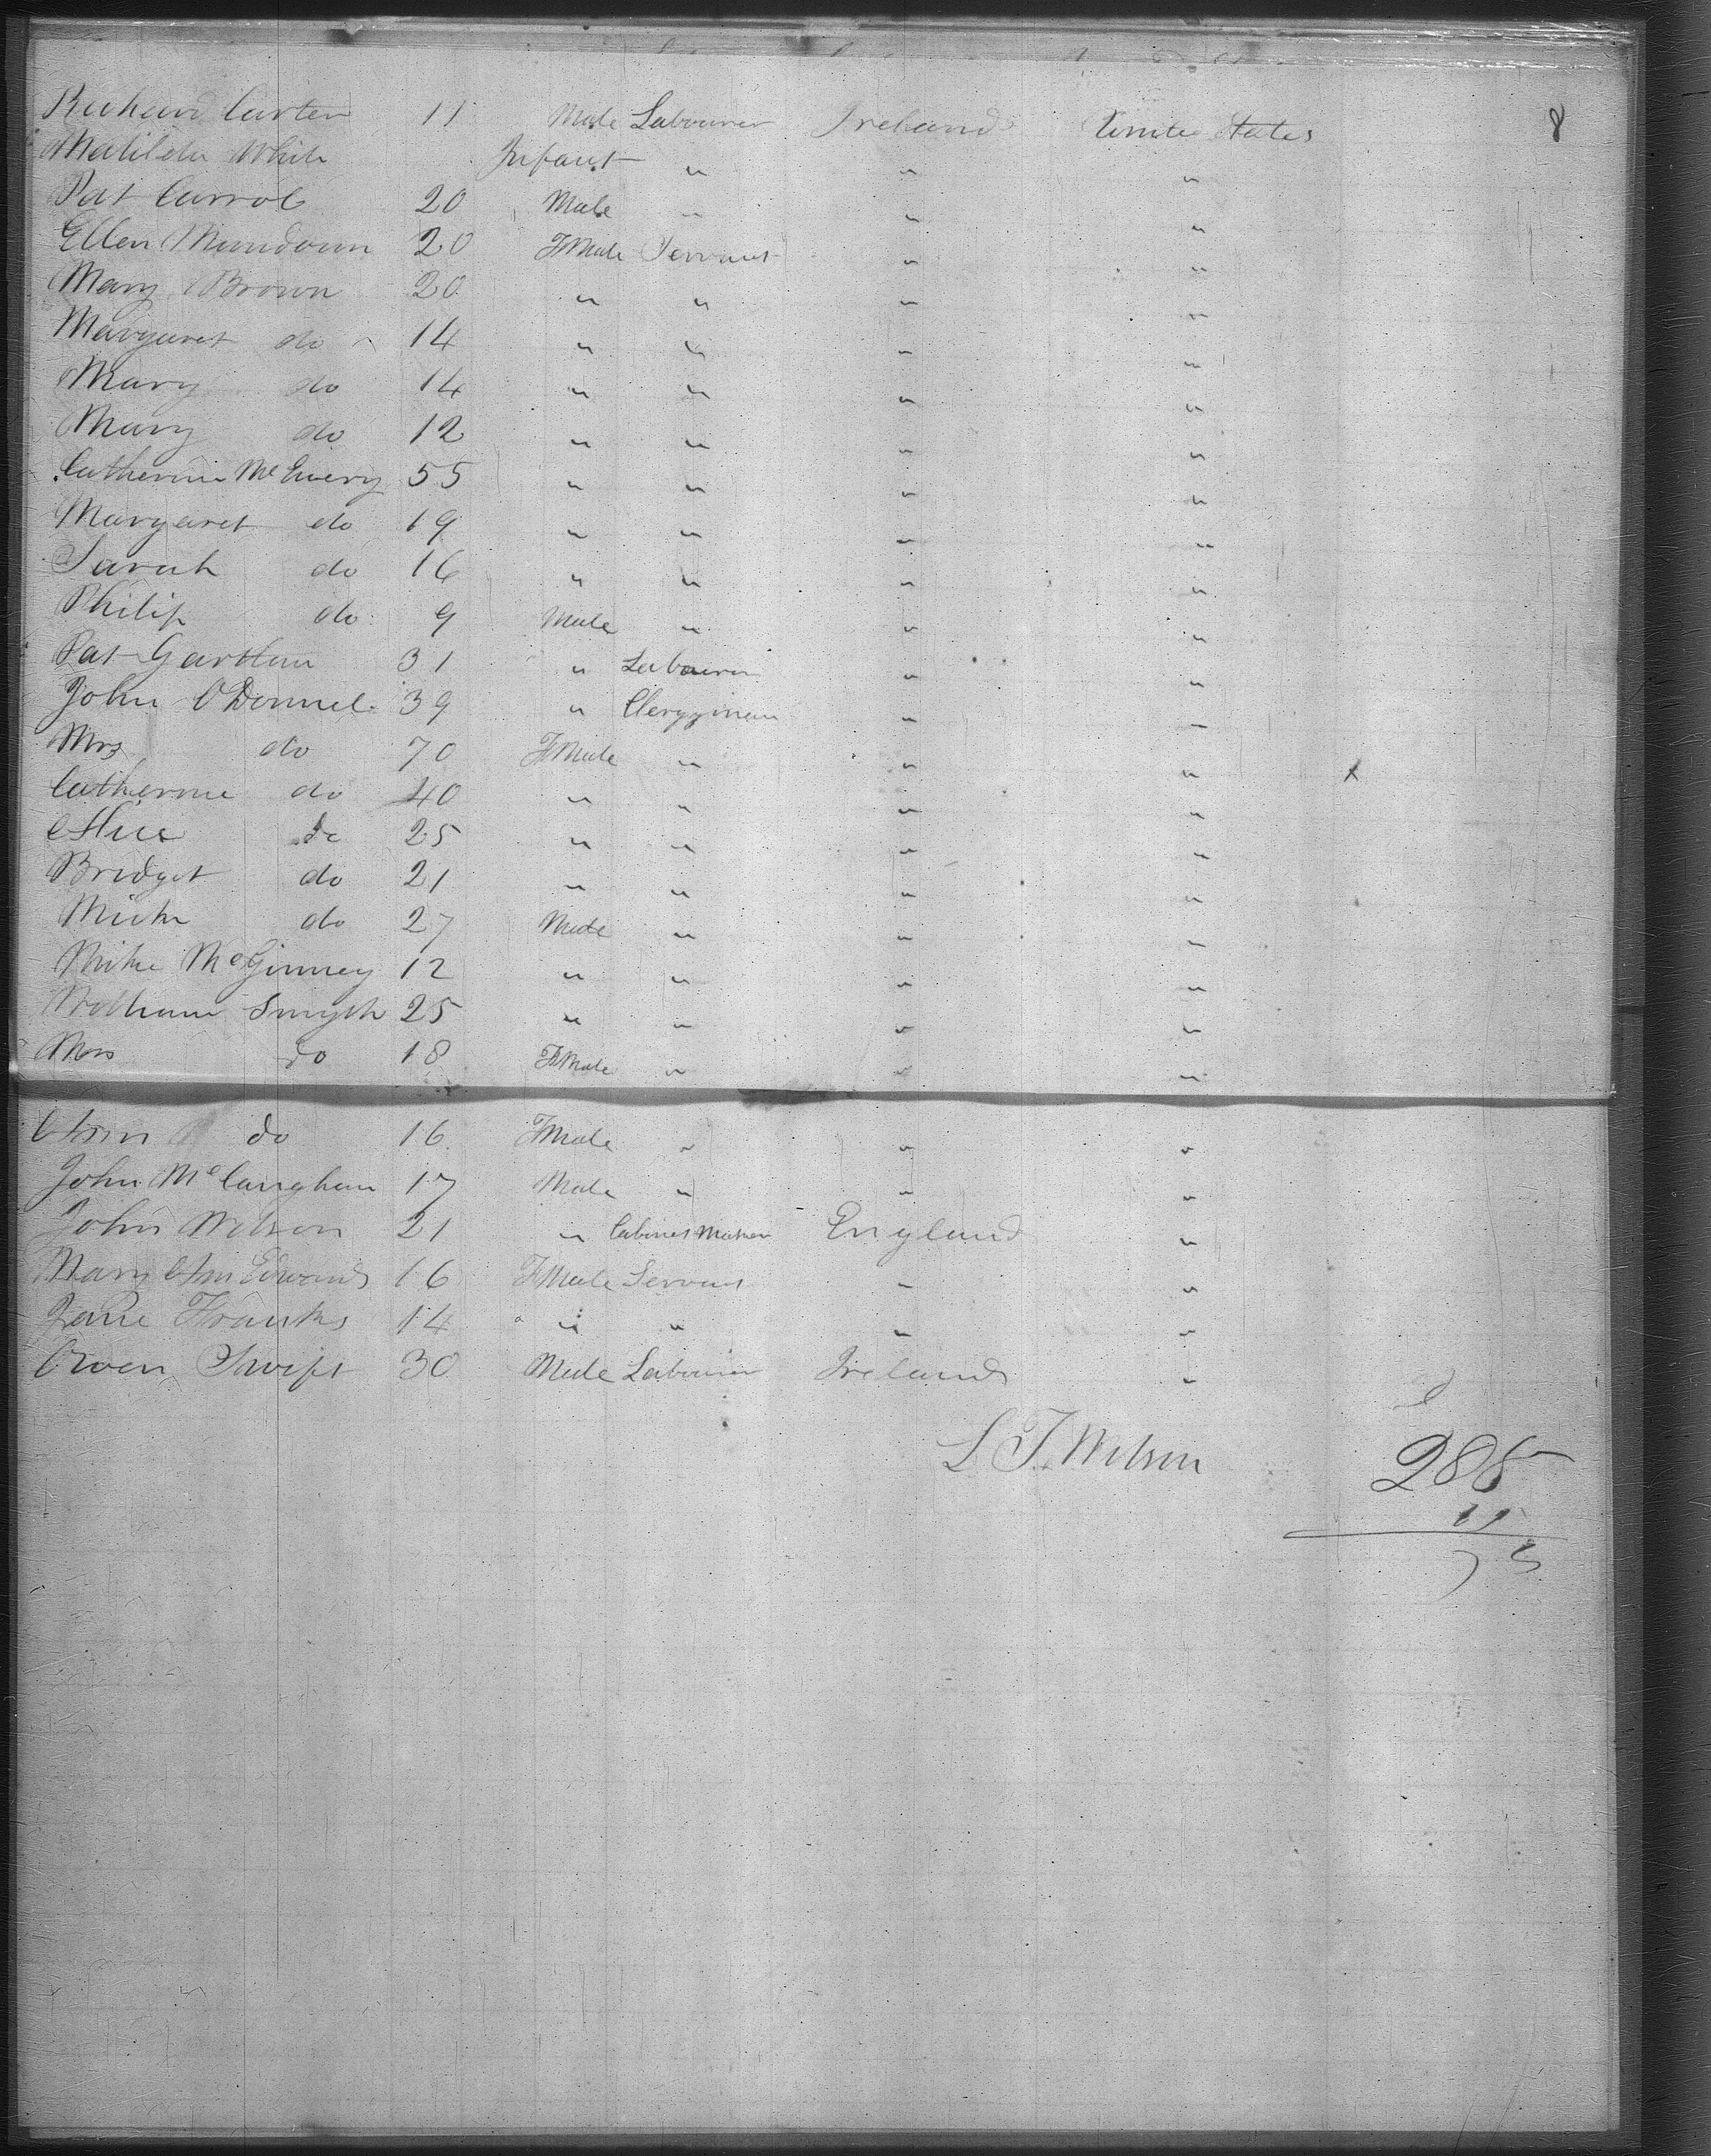 Richard Carter 11 Male Labourer Ireland United States 8
Matilda White Infant " " "
Pat Carrol 20 Male " " "
Ellen 20 FMale Servant " "
Mary Brown 20 " " " "
Margaret do 14 " " " "
Mary do 14 " " " "
Mary do 12 " " " "
Catherine McEnery 55 " " " "
Margaret do 19 " " " "
Sarah do 16 " " " "
Philip do 9 Male " " "
Pat Gartlan 31 " Labourer " "
John O'Donnel 39 " Clergyman " "
Mrs do 70 FMale " " " x
Catherine do 40 " " " "
Alice do 25 " " " "
Bridget do 21 " " " "
Mick do 27 Male " " "
Mike McGinney 12 " " " "
William Smyth 25 " " " "
Mrs do 18 FMale " " "
Ann do 16 FMale " " "
John McCaughan 17 Male " " "
John Wilson 21 " Cabinet Maker England "
Mary Ann Edwards 16 FMale Servant " "
Jane Franks 14 " " " "
Owen Swift 30 Male Labourer Ireland "